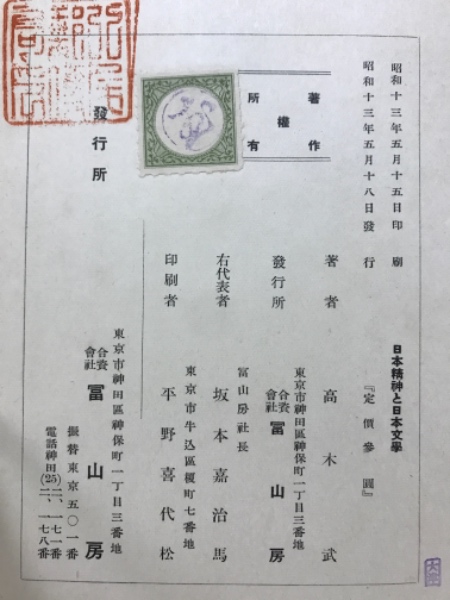 昭和十三年五月十五日印刷
昭和十三年五月十八日發行
日本精神と日本文學
『定價參圓』
著作
權
所有
著者 高木武
東京市神田區神保町一丁目三番地
發行所 合資會社 冨山房
冨山房社長
右代表者 坂本嘉治馬
東京市牛込區榎町七番地
印刷者 平野喜代松
發行所
東京市神田區神保町一丁目三番地
合資會社 冨山房
振替東京五〇一番
電話神田(25)二、一七一番
二、一七八番